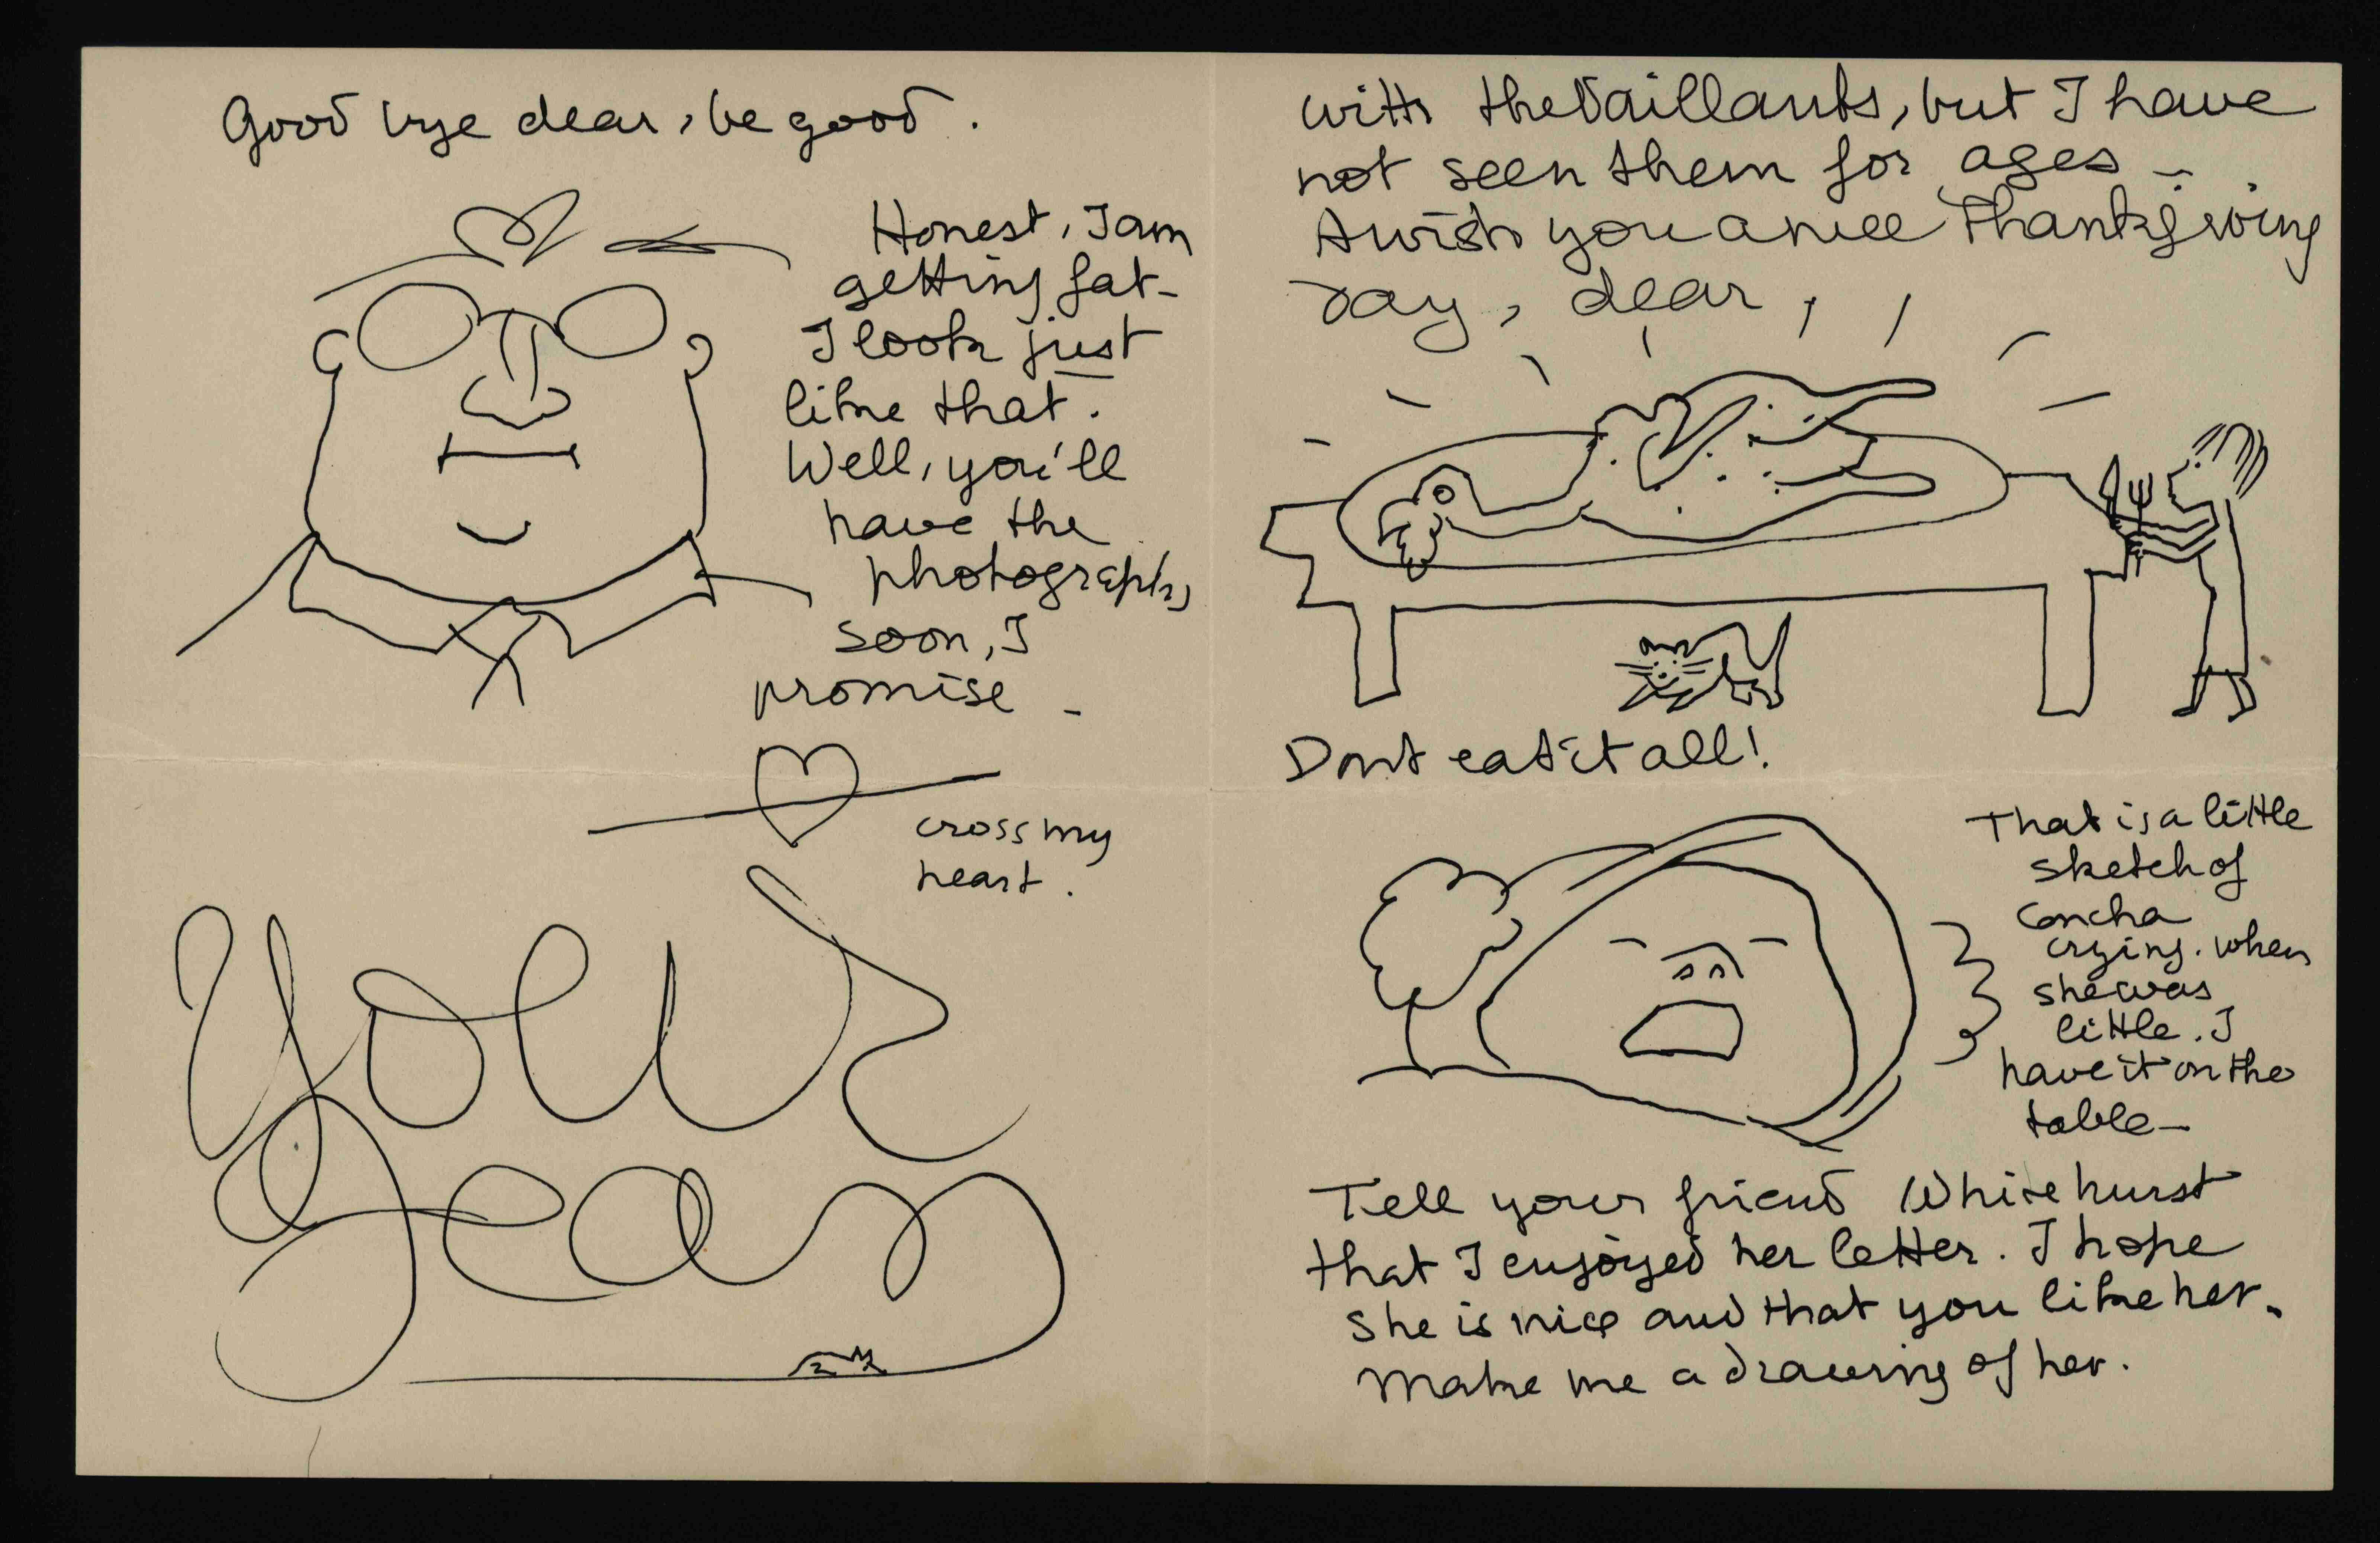 Good bye dear, be good.
Honest, I am
getting fat -
I look just
like that.
Well, you'll
have the
photographs
soon, I
promise -
cross my
heart.
Your
Jean
with the Vaillants, but I have
not seen them for ages -
A wish you a nice Thanksgiving
day, dear,
Dont eat it all!
That is a little
sketch of
Concha
crying. when
she was
little. I
have it on the
table -
Tell your friend Whitehurst
that I enjoyed her letter. I hope
she is nice and that you like her.
Make me a drawing of her.